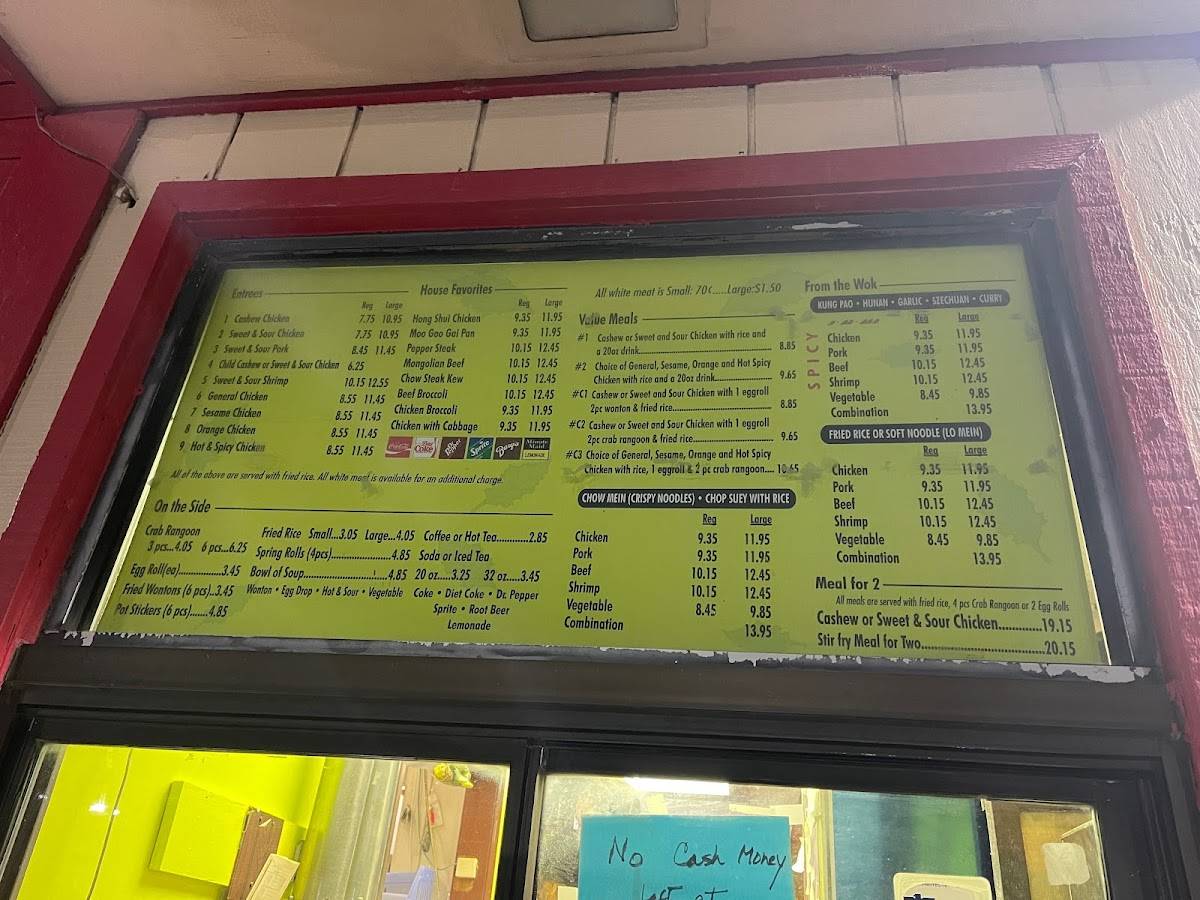 Entrees
Reg Large
1 Cashew Chicken 7.75 10.95
2 Sweet & Sour Chicken 7.75 10.95
3 Sweet & Sour Pork 8.45 11.45
4 Child Cashew or Sweet & Sour Chicken 6.25
5 Sweet & Sour Shrimp 10.15 12.55
6 General Chicken 8.55 11.45
7 Sesame Chicken 8.55 11.45
8 Orange Chicken 8.55 11.45
9 Hot & Spicy Chicken 8.55 11.45
House Favorites
Reg Large
Hong Shui Chicken 9.35 11.95
Moo Goo Gai Pan 9.35 11.95
Pepper Steak 10.15 12.45
Mongolian Beef 10.15 12.45
Chow Steak Kew 10.15 12.45
Beef Broccoli 10.15 12.45
Chicken Broccoli 9.35 11.95
Chicken with Cabbage 9.35 11.95
Coca-Cola Diet Coke Dr Pepper Sprite Barq's Minute Maid LEMONADE
All of the above are served with fried rice. All white meat is available for an additional charge.
On the Side
Crab Rangoon
3 pcs...4.05 6 pcs...6.25
Egg Roll(ea)...................3.45
Fried Wontons (6 pcs)..3.45
Pot Stickers (6 pcs).......4.85
Fried Rice Small...3.05 Large...4.05
Spring Rolls (4pcs)........................4.85
Bowl of Soup.................................4.85
Wonton • Egg Drop • Hot & Sour • Vegetable
Coffee or Hot Tea............2.85
Soda or Iced Tea
20 oz.....3.25 32 oz.....3.45
Coke • Diet Coke • Dr. Pepper
Sprite • Root Beer
Lemonade
All white meat is Small: 70¢.....Large:$1.50
Value Meals
#1 Cashew or Sweet and Sour Chicken with rice and
a 20oz drink........................................ 8.85
#2 Choice of General, Sesame, Orange and Hot Spicy
Chicken with rice and a 20oz drink.......................... 9.65
#C1 Cashew or Sweet and Sour Chicken with 1 eggroll
2pc wonton & fried rice.............................. 8.85
#C2 Cashew or Sweet and Sour Chicken with 1 eggroll
2pc crab rangoon & fried rice........................ 9.65
#C3 Choice of General, Sesame, Orange and Hot Spicy
Chicken with rice, 1 eggroll & 2 pc crab rangoon.... 10.65
CHOW MEIN (CRISPY NOODLES) • CHOP SUEY WITH RICE
Reg Large
Chicken 9.35 11.95
Pork 9.35 11.95
Beef 10.15 12.45
Shrimp 10.15 12.45
Vegetable 8.45 9.85
Combination 13.95
From the Wok
KUNG PAO • HUNAN • GARLIC • SZECHUAN • CURRY
SPICY
Reg Large
Chicken 9.35 11.95
Pork 9.35 11.95
Beef 10.15 12.45
Shrimp 10.15 12.45
Vegetable 8.45 9.85
Combination 13.95
FRIED RICE OR SOFT NOODLE (LO MEIN)
Reg Large
Chicken 9.35 11.95
Pork 9.35 11.95
Beef 10.15 12.45
Shrimp 10.15 12.45
Vegetable 8.45 9.85
Combination 13.95
Meal for 2
All meals are served with fried rice, 4 pcs Crab Rangoon or 2 Egg Rolls
Cashew or Sweet & Sour Chicken.............19.15
Stir fry Meal for Two....................................20.15
No Cash Money